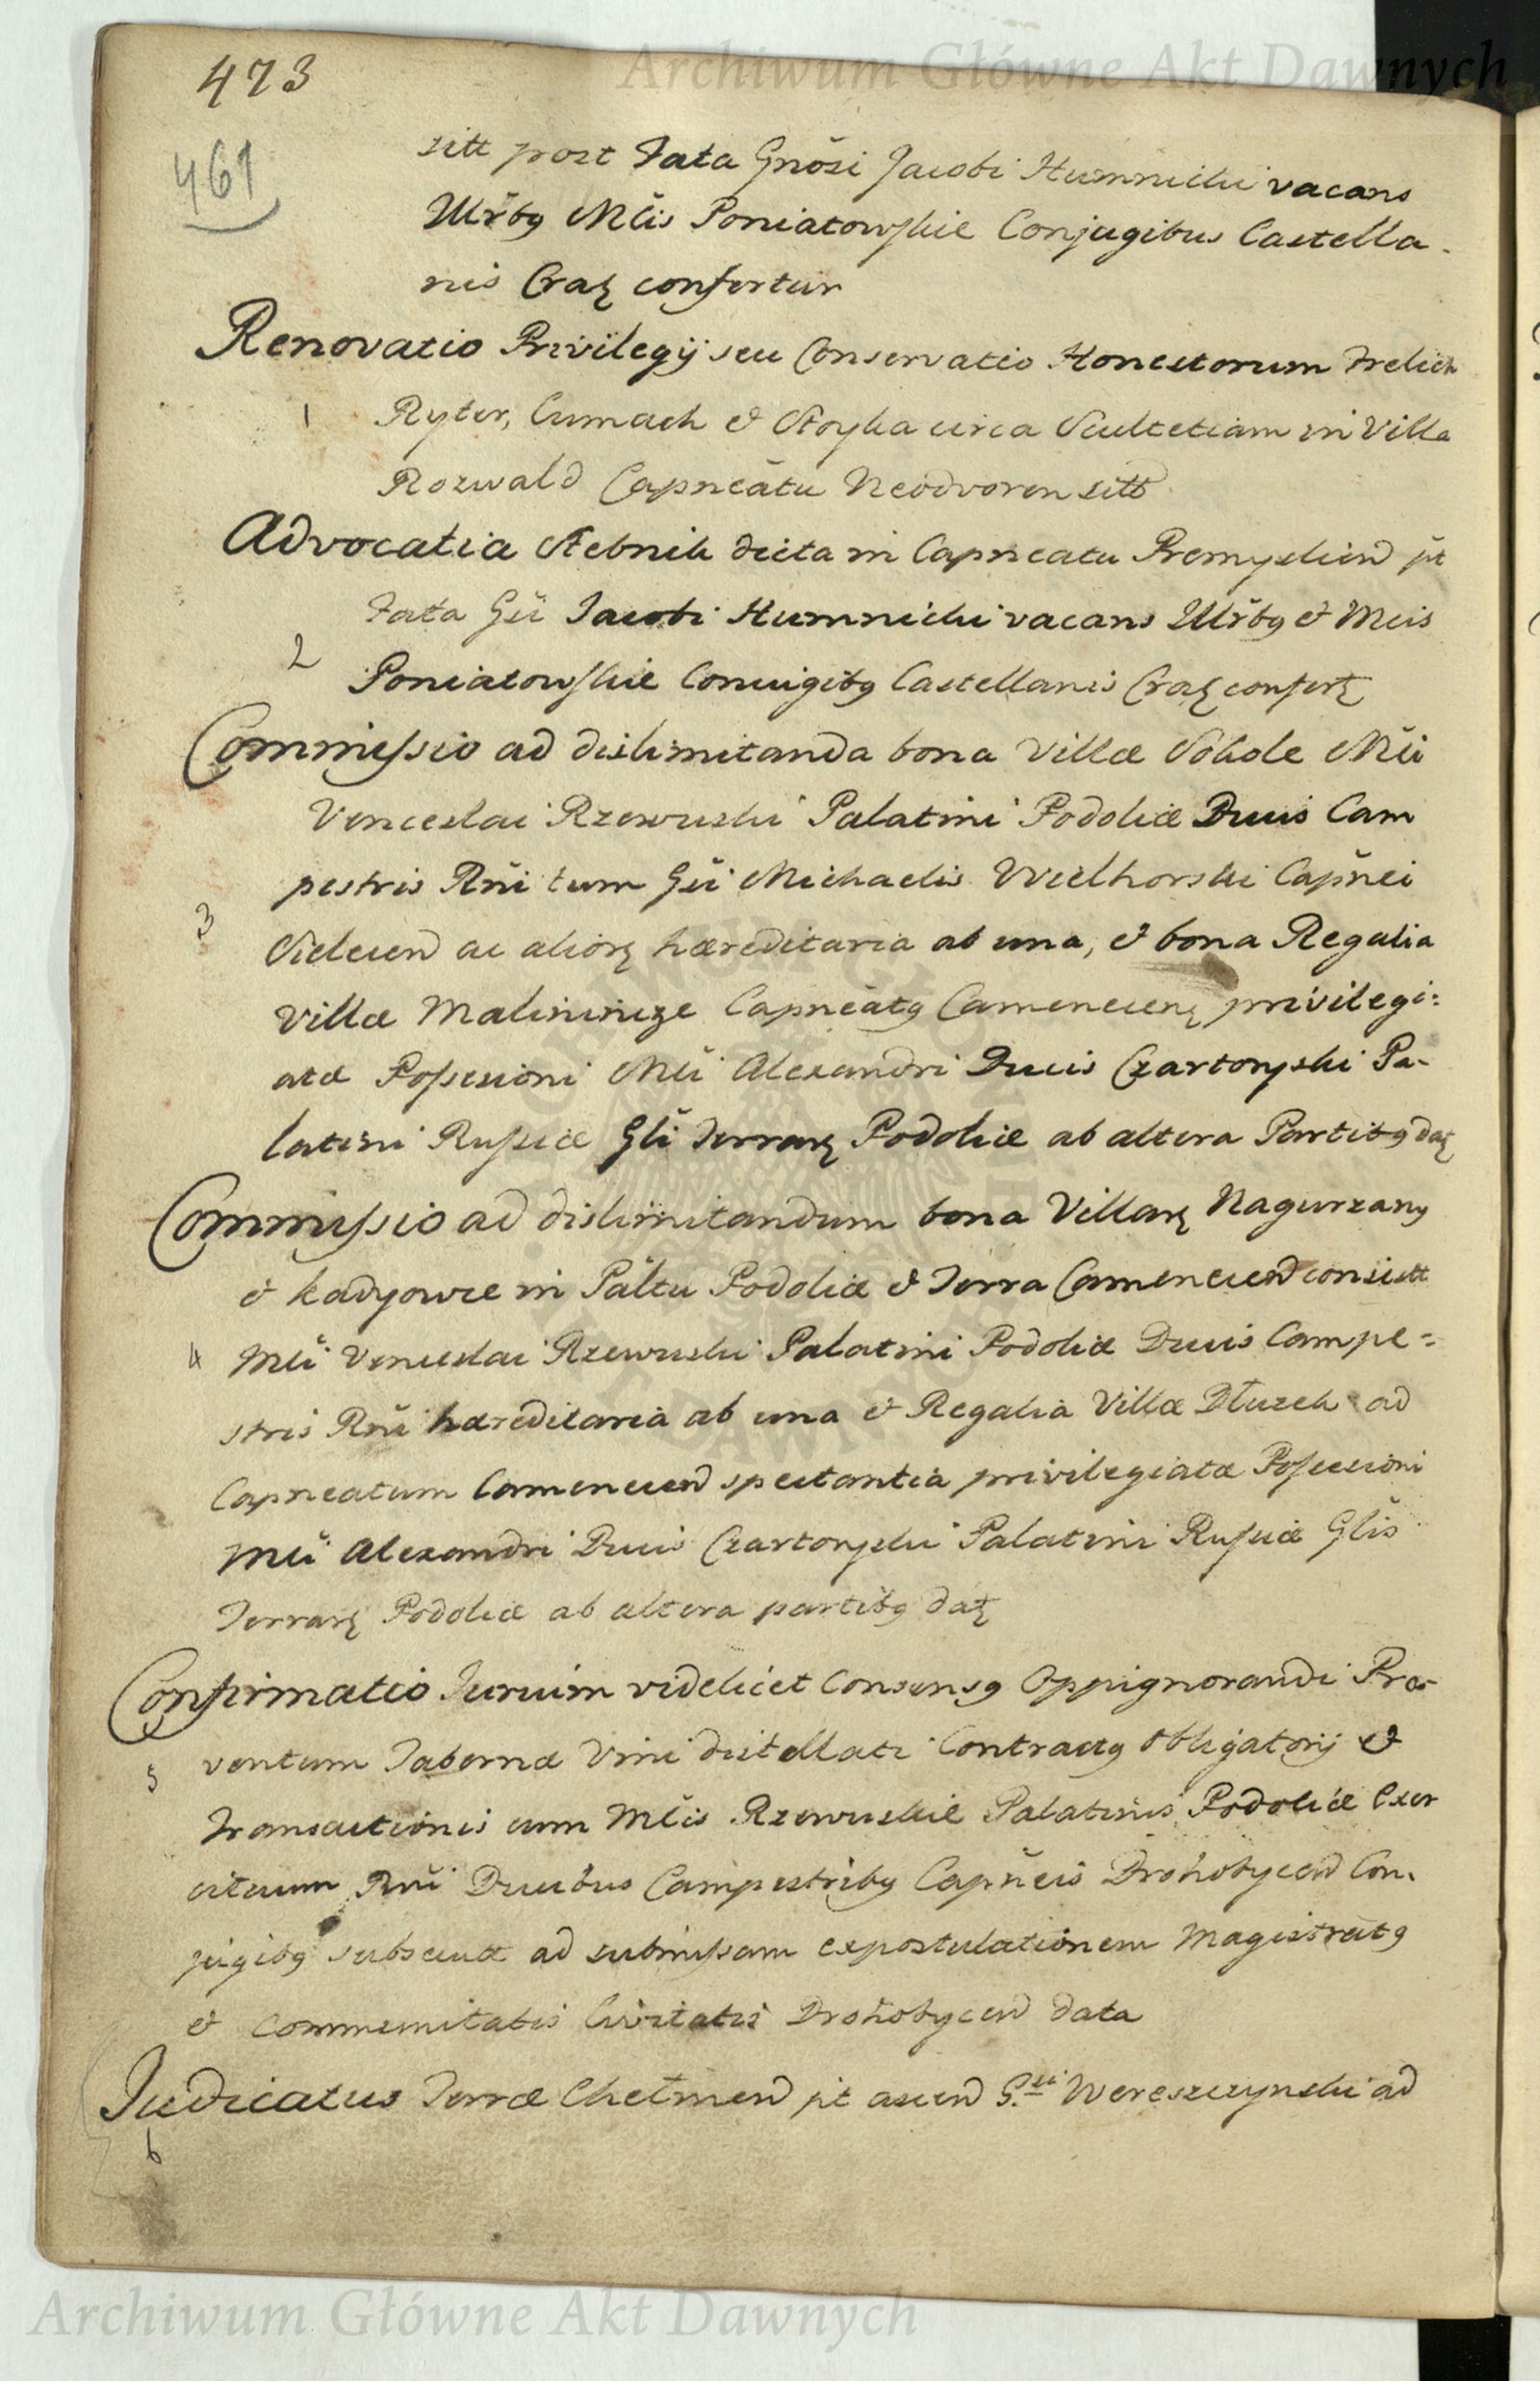 Archiwum Główne Akt Dawnych
473
461
sitt post Fata Gnõsi Jacobi Humnicki vacans
Mĩs Poniatowskie Conjugibus Castella-
nis Crac̨ confertur
Renovatio Privilegij seu Conservatio Honestorum Frelich
1 Ryter, Cumach & Stoyka circa Scultetiam in Villa
Rozwald Capneãtu Neodvoren sitt
Advocatia Stebnik dicta in Capneatu Premyslien pt
Fata Gĩi Jacobi Humnicki vacans & Mcis
2 Poniatowskie Coniugibg Castellanis Crac̨ confert
Commissio ad dislimitanda bona Villæ Sokole Mci
Venceslai Rzewuski Palatini Podoliæ Ducis Cam
pestris Rñi tum Gĩi Michaelis Wielhorski Capñei
3 ac alior̨ hæreditaria ab una, & bona Regalia
Villæ Malininize Capneãtg Camenecen̨ privilegi:
atæ Possessioni Mci Alexandri Ducis Czartoryski Pa-
latini Russiæ Glĩ Terrar̨ Podoliæ ab altera Partibg dat̨
Commissio ad dislimitandum bona Villar̨ Nagurzany
& Kadyowce in Paltu Podoliæ & Terra Camenecen consistt
4 Mci Venceslai Rzewuski Palatini Podoliæ Ducis Campe=
stris Rñi hæreditaria ab una & Regalia Villæ Dłuzek ad
Capneatum Camenecen spectantia privilegiatæ Possessioni
Mci Alexandri Ducis Czartoryski Palatini Russiæ Glĩs
Terrar̨ Podoliæ ab altera partibg dat̨
Confirmatio Jurium videlicet Consensg Oppignorandi Pro-
5 ventum Tabernæ Vini distellati Contractg obligatorij &
Transactionis cum Mcis Rzewuskie Palatinis Podoliæ Exer
cituum Rñi Ducibus Campestribg Capñeis Drohobycen Con-
jugibg subsecutæ ad submissam expostulationem Magistratg
& Communitatis Civitatis Drohobycen data
Judicatus Terræ Chełmen pt ascen G.si Wereszczynski ad
6
Archiwum Główne Akt Dawnych